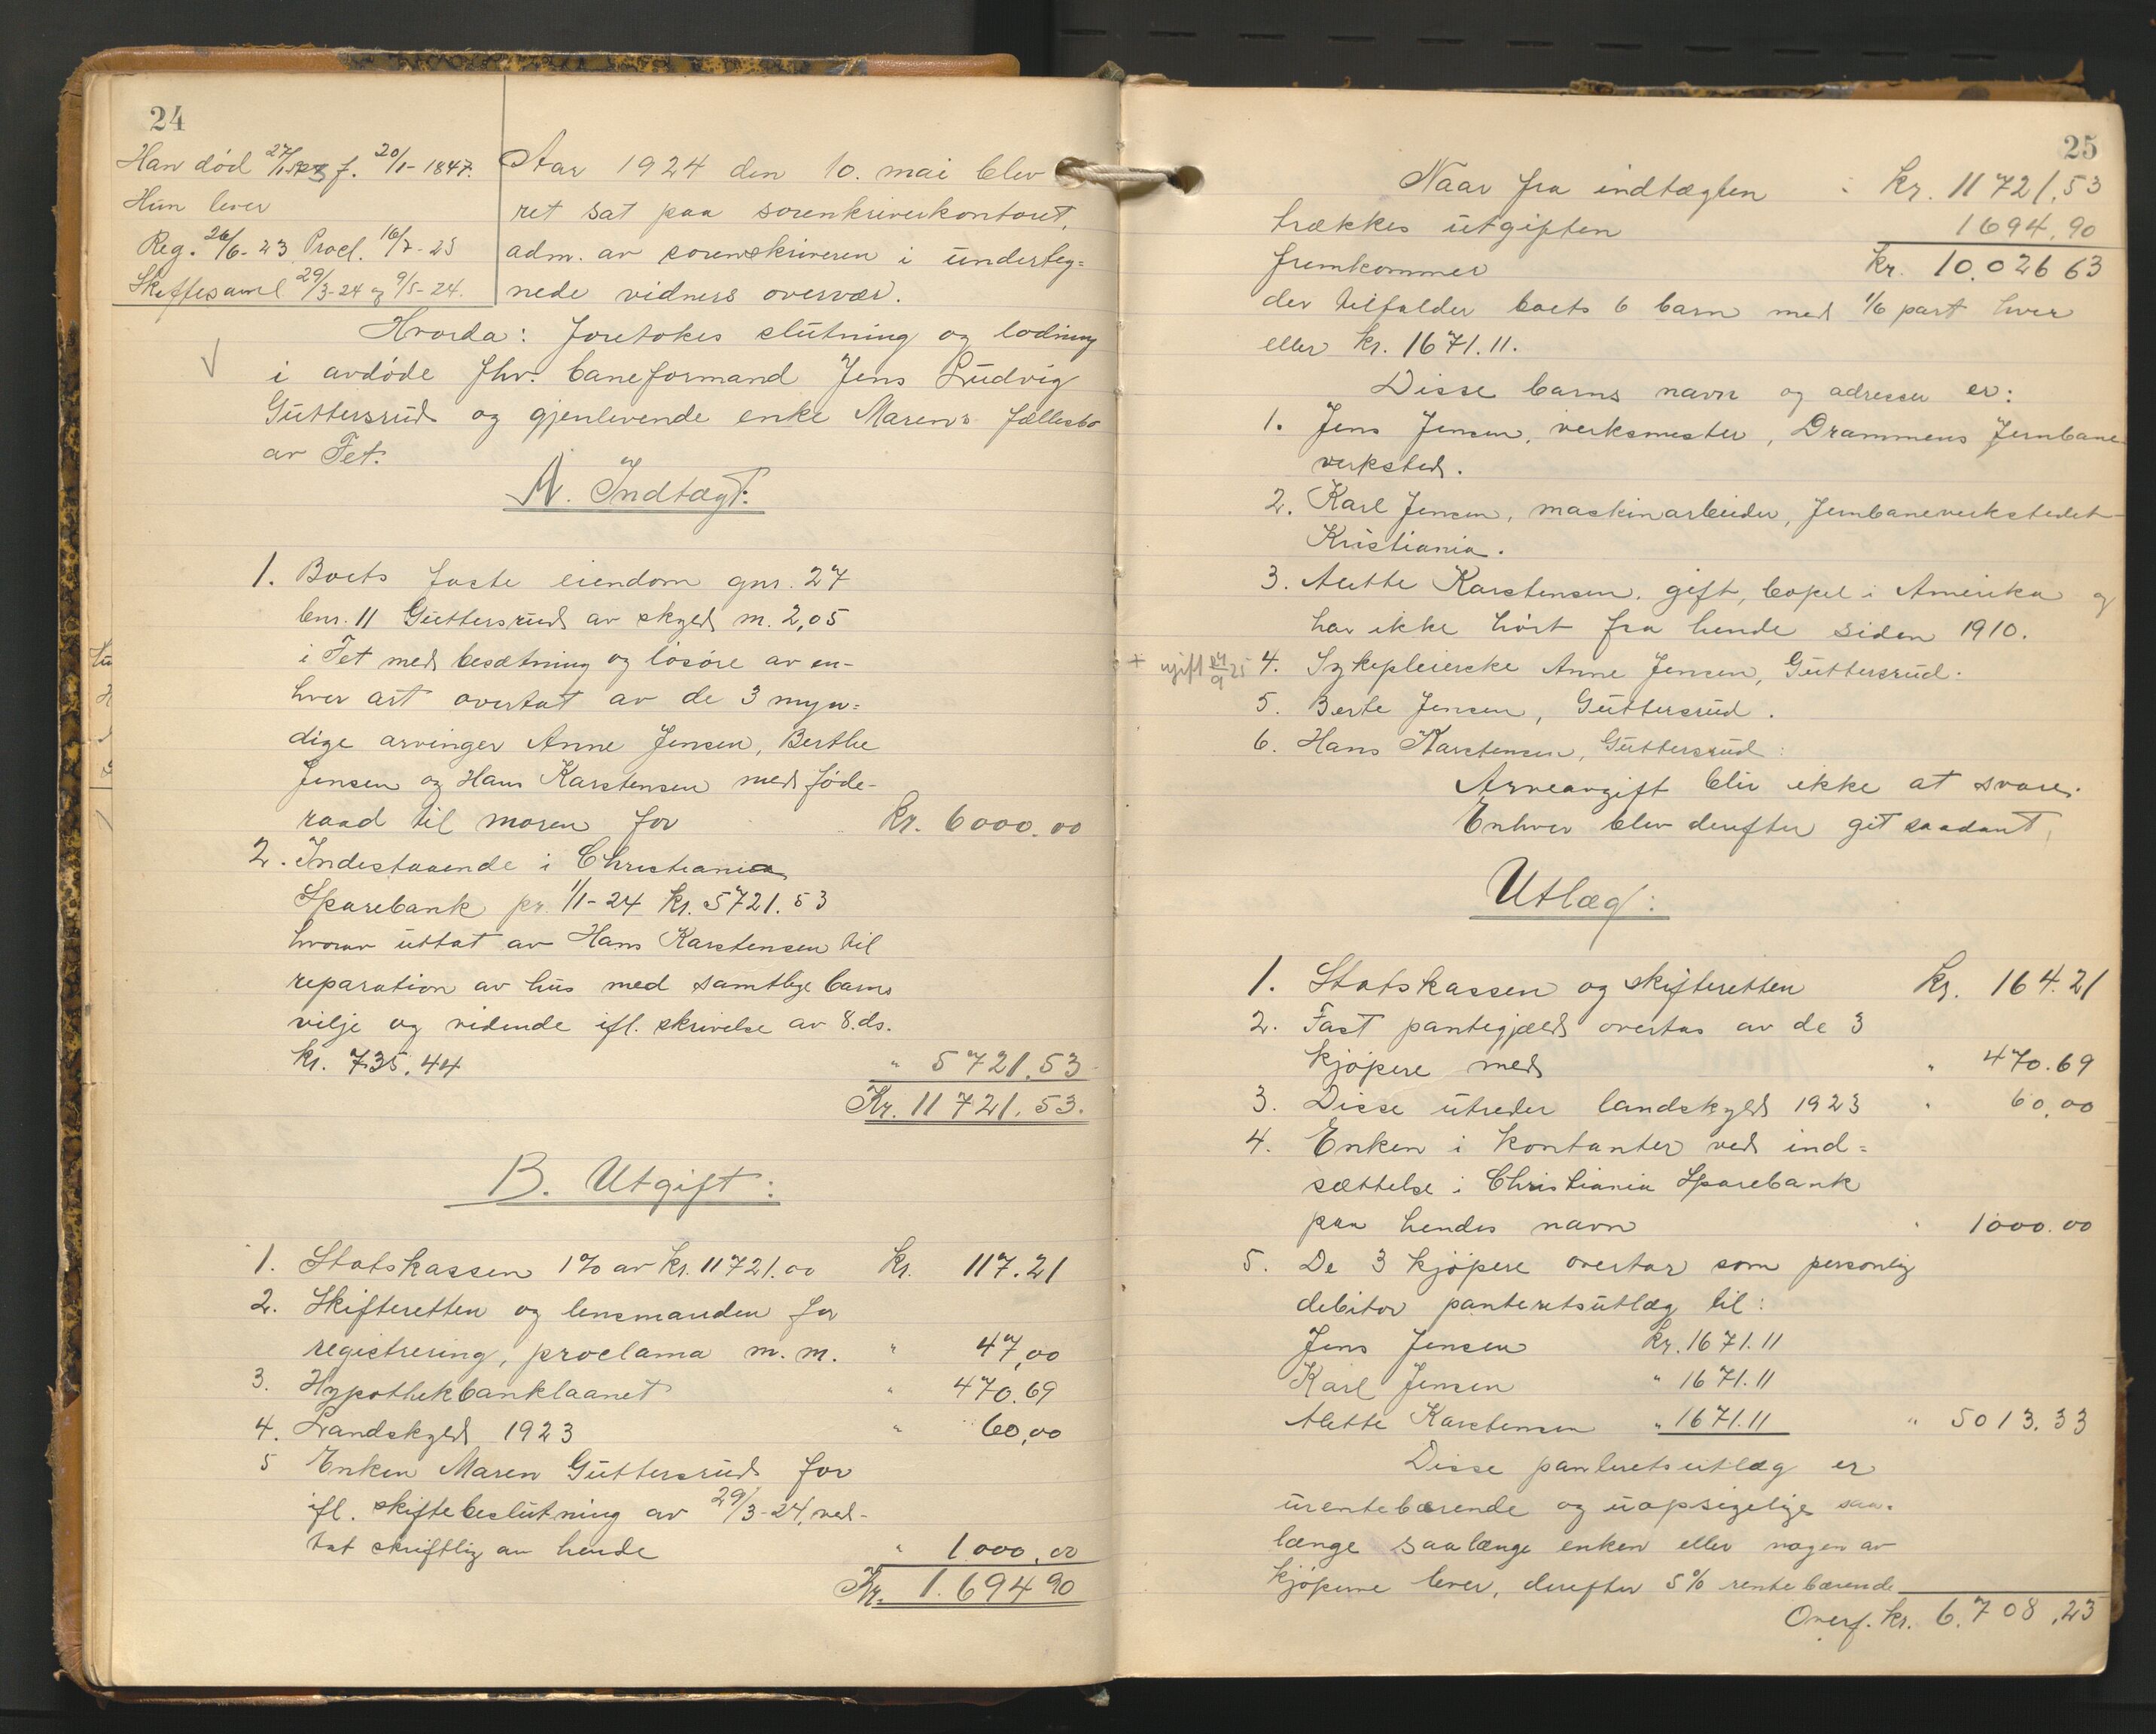 24
Han død 27/1 1923 f. 20/1-1847.
Hun lever
Reg. 26/6-23. Procl. 16/7-23
Skiftesaml. 29/3-24 og 9/5-24.
Aar 1924 den 10. mai blev
ret sat paa sorenkriverkontoret,
adm. av sorenskriveren i underteg=
nede vidners overvær.
Hvorda: Foretokes slutning og lodning
i avdøde fhv. baneformand Jens Ludvig
Guttersrud og gjenlevende enke Marens fællesbo
av Fet.
A. Indtægt:
1. Boets faste eiendom gnr. 27
bnr. 11 Guttersrud av skyld m. 2,05
i Fet med besætning og løsøre av en-
hver art overtat av de 3 myn=
dige arvinger Anne Jensen, Berthe
Jensen og Hans Karstensen med føde-
raad til moren for Kr. 6000.00
2. Indestaaende i Christiania
Sparebank pr. 1/1-24 kr. 5721.53
hvorav uttat av Hans Karstensen til
reparation av hus med samtlige barns
vilje og vidende ifl. skrivelse av 8.ds.
kr. 735.44 " 5721.53
Kr. 11721.53.
B. Utgift:
1. Statskassen 1% av kr. 11721.00 Kr. 117.21
2. Skifteretten og lensmanden for
registrering, proclama m.m. " 47,00
3. Hypothekbanklaanet " 470.69
4. Landskyld 1923 " 60,00
5 Enken Maren Guttersrud for
ifl. skiftebeslutning av 29/3-24, ved-
tat skriftlig av hende " 1000.00
Kr. 1.694 90
25
Naar fra indtægten : Kr. 11721,53
trækkes utgiften 1694,90
fremkommer Kr. 10.026 63
der tilfalder boets 6 barn med 1/6 part hver
eller kr. 1671.11.
Disse barns navn og adresser er:
1. Jens Jensen, verksmester, Drammens Jernbane
verksted.
2. Karl Jensen, maskinarbeider, Jernbaneverkstedet
Kristiania.
3. Alette Karstensen, gift, bopel i Amerika og
har ikke hørt fra hende siden 1910.
4. Sykepleierske Anne Jensen, Guttersrud.
5. Berte Jensen, Guttersrud.
6. Hans Karstensen, Guttersrud:
Arveavgift blir ikke at svare.
Enhver blev derefter git saadant
Utlæg:
1. Statskassen og skifteretten Kr. 164.21
2. Fast pantegjæld overtas av de 3
kjøpere med " 470.69
3. Disse utreder landskyld 1923 " 60,00
4. Enken i kontanter ved ind=
sættelse i Christiania Sparebank
paa hendes navn " 1000.00
5. De 3 kjøpere overtar som personlig
debitor panteretsutlæg til:
Jens Jensen Kr. 1671.11
Karl Jensen " 1671.11
Alette Karstensen " 1671.11 " 5013.33
Disse panteretsutlæg er
urentebærende og uopsigelige saa-
længe saalænge enken eller nogen av
kjøperne lever, derefter 5% rentebærende
Overf. kr. 6.708,23